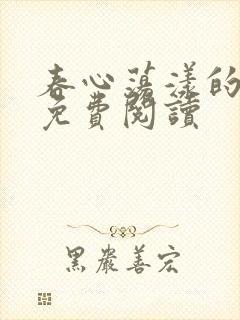 春心蕩漾的
免費閱讀
黑嚴善宏